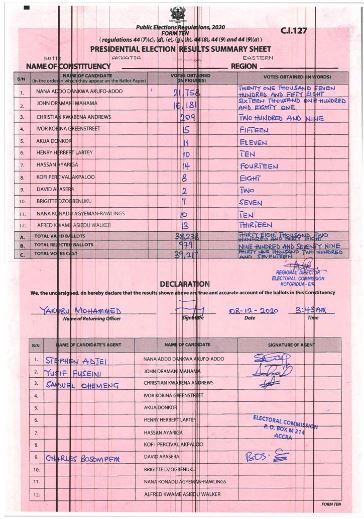 Public Elections Regulations, 2020
FORM TEN
C.I.127
( regulations 44 (7)(c), (d), (e), (g), (h), 44 (8), 44 (9) and 44 (9)(a) )
PRESIDENTIAL ELECTION RESULTS SUMMARY SHEET
NAME OF CONSTITUENCY REGION EASTERN
S/N NAME OF CANDIDATE VOTES OBTAINED VOTES OBTAINED (IN WORDS)
(in the order in which they appear on the Ballot Paper) (IN FIGURES)
1. NANA ADDO DANKWA AKUFO-ADDO 21,758 TWENTY ONE THOUSAND SEVEN
HUNDRED AND FIFTY EIGHT
2. JOHN DRAMANI MAHAMA 16,181 SIXTEEN THOUSAND ONE HUNDRED
AND EIGHTY ONE
3. CHRISTIAN KWABENA ANDREWS 209 TWO HUNDRED AND NINE
4. IVOR KOBINA GREENSTREET 15 FIFTEEN
5. AKUA DONKOR 11 ELEVEN
6. HENRY HERBERT LARTEY 10 TEN
7. HASSAN AYARIGA 14 FOURTEEN
8. KOFI PERCIVAL AKPALOO 8 EIGHT
9. DAVID APASERA 2 TWO
10. BRIGITTE DZOGBENUKU 7 SEVEN
11. NANA KONADU AGYEMAN-RAWLINGS 10 TEN
12. ALFRED KWAME ASIEDU WALKER 13 THIRTEEN
A. TOTAL VALID BALLOTS 38,238 THIRTY EIGHT THOUSAND, TWO
HUNDRED AND THIRTY EIGHT
B. TOTAL REJECTED BALLOTS 979 NINE HUNDRED AND SEVENTY NINE
C. TOTAL VOTES CAST 39,217 THIRTY NINE THOUSAND TWO HUNDRED
AND SEVENTEEN
REGIONAL DIRECTOR
ELECTORAL COMMISSION
KOFORIDUA - E/R
DECLARATION
We, the undersigned, do hereby declare that the results shown above are true and accurate account of the ballots in this Constituency
YAKUBU MOHAMMED 08-12-2020 3:43AM
Name of Returning Officer Signature Date Time
S/N NAME OF CANDIDATE'S AGENT NAME OF CANDIDATE SIGNATURE OF AGENT
1. STEPHEN ADJEI NANA ADDO DANKWA AKUFO-ADDO
2. YUSIF FUSEINI JOHN DRAMANI MAHAMA
3. SAMUEL CHEMENG CHRISTIAN KWABENA ANDREWS
4. IVOR KOBINA GREENSTREET
5. AKUA DONKOR
6. HENRY HERBERT LARTEY
7. HASSAN AYARIGA
8. KOFI PERCIVAL AKPALOO
ELECTORAL COMMISSION
P. O. BOX M 214
ACCRA
9. CHARLES BOSOMPEM DAVID APASERA
10. BRIGITTE DZOGBENUKU
11. NANA KONADU AGYEMAN-RAWLINGS
12. ALFRED KWAME ASIEDU WALKER
FORM TEN